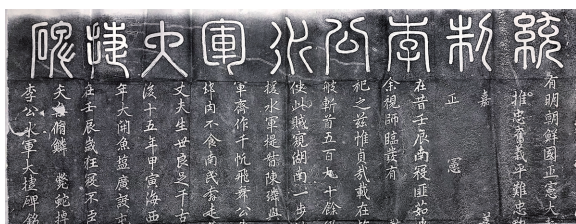 統制李公水軍大捷碑
有明朝鮮國正憲大夫
推忠奮義平難忠
嘉
正憲
在昔壬辰南寇匪茹
余視師臨發有
祀之茲惟貞哉載在
般斬首五百九十餘
使此賊窺湖南一步
援水軍提督陳璘與
軍齊作千帆飛舞公
邦內不食南民奔走
丈夫生世良足千古
後十五年甲寅海西
年大開魚鹽廣設屯
在壬辰歲狂寇不
脩鱗
李公水軍大捷碑銘